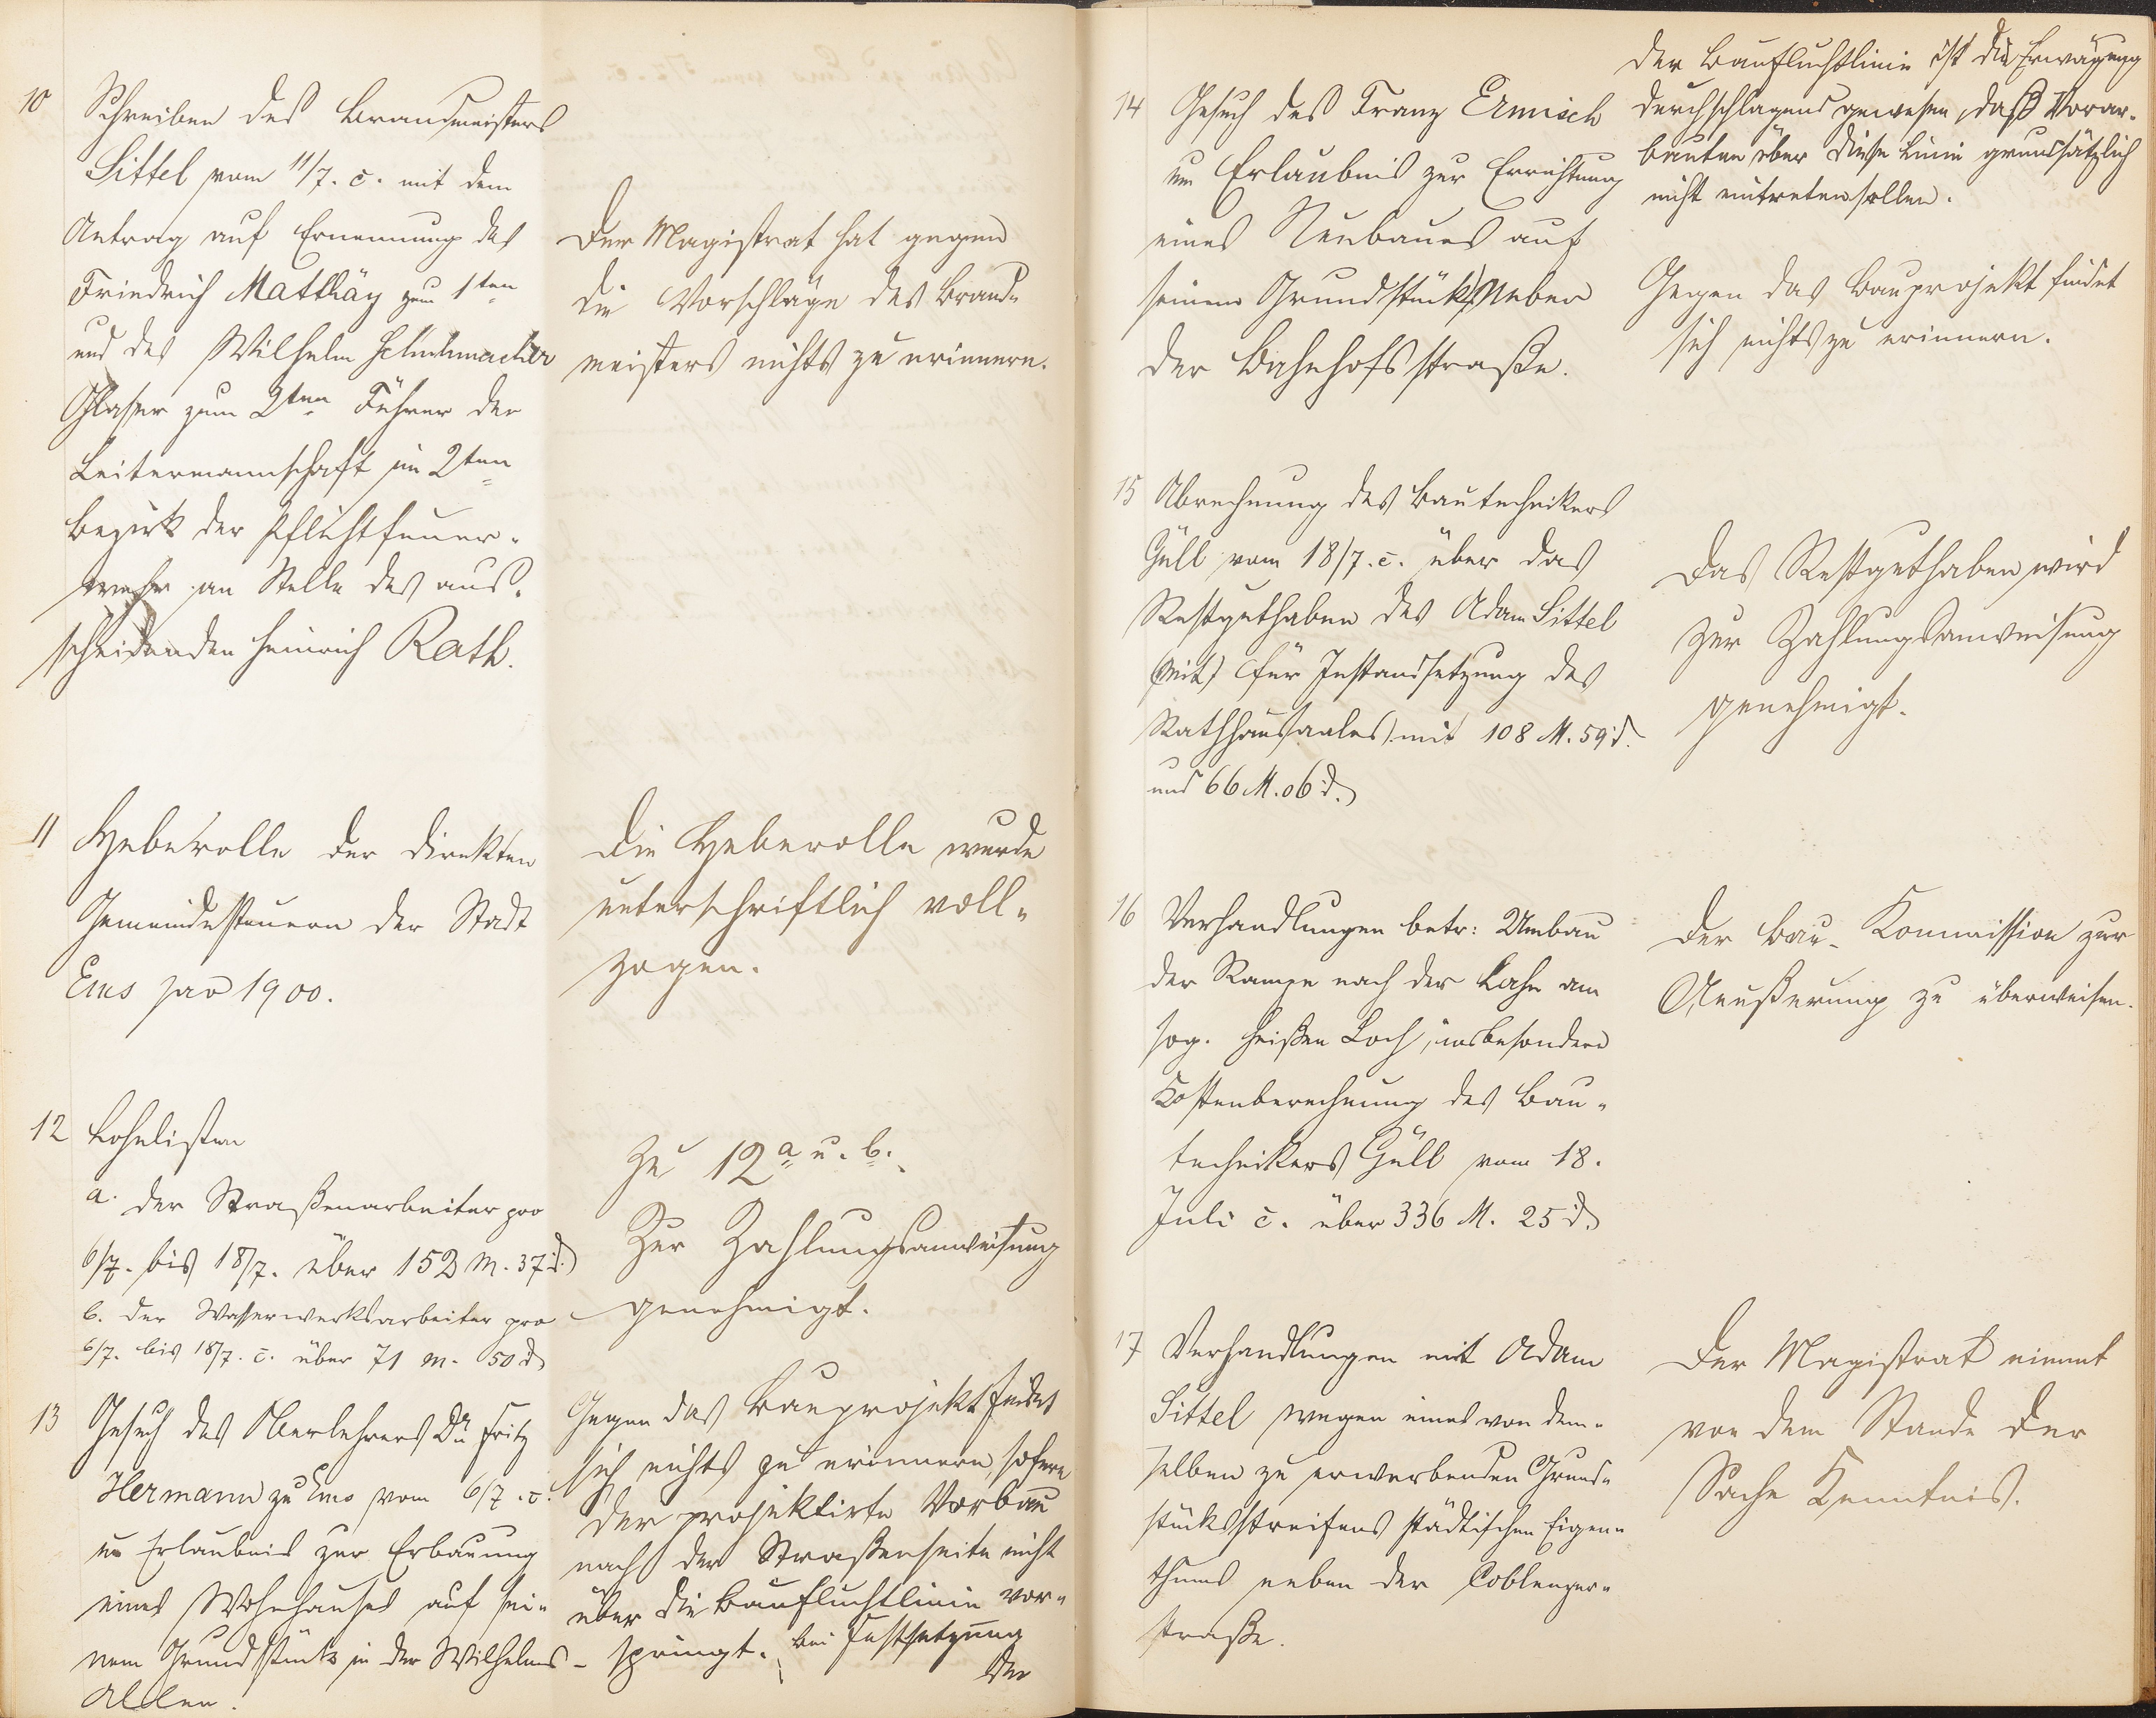 10
Schreiben des Brandmeisters
Sittel vom 11/7. c. mit dem
Antrag auf Ernennung des
Friedrich Matthäy zum 1ten
und des Wilhelm Schuhmacher
Glaser zum 2ten Führer der
Leitermannschaft im 2ten
Bezirk der Pflichtfeuer-
wehr an Stelle des aus-
scheidenden Heinrich Rath.
Der Magistrat hat gegen
die Vorschläge des Brand-
meisters nichts zu erinnern.
11
Heberolle der direkten
Gemeindesteuern der Stadt
Ems pro 1900.
Die Heberolle wurde
unterschriftlich voll-
zogen.
12 Lohnlisten
a. der Straßenarbeiter pro
6/7. bis 18/7. über 152 M. 37 d.
b. der Wasserwerksarbeiter pro
6/7. bis 18/7. c. über 71 M. 50 d.
Zu 12 a u. b.
Zur Zahlungsanweisung
genehmigt.
13 Gesuch des Oberlehrers Dr. Fritz
Hermann zu Ems vom 6/7. c.
um Erlaubnis zur Erbauung
eines Wohnhauses auf sei-
nem Grundstück in der Wilhelms-
Allee.
Gegen das Bauprojekt findet
sich nichts zu erinnern, sofern
der projektirte Vorbau
nach der Straßenseite nicht
über die Baufluchtlinie vor-
springt. Bei Festsetzung
der
14 Gesuch des Franz Ermisch
um Erlaubnis zur Errichtung
eines Neubaues auf
seinem Grundstück neben
der Bahnhofsstraße.
der Baufluchtlinie ist die Erwägung
durchschlagend gewesen, daß Vorar-
bauten über diese Linie grundsätzlich
nicht eintreten sollen.
Gegen das Bauprojekt findet
sich nichts zu erinnern.
15 Abrechnung des Bautechnikers
Güll vom 18/7. c. über das
Restguthaben des Adam Sittel
für Instandsetzung des
Rathhaussaales mit 108 M. 59 d.
und 66 M. 06 d.
Das Restguthaben wird
zur Zahlungsanweisung
genehmigt.
16 Verhandlungen betr: Umbau
der Rampe nach der Lahn am
sog. heißen Loch, insbesondere
Kostenberechnung des Bau-
technikers Güll vom 18.
Juli c. über 336 M. 25 d.
Der Bau-Kommission zur
Aeußerung zu überweisen.
17 Verhandlungen mit Adam
Sittel wegen eines von dem-
selben zu erwerbenden Grund-
stücksstreifens städtischen Eigen-
thums neben der Coblenzer-
straße.
Der Magistrat nimmt
von dem Stande der
Sache Kenntnis.